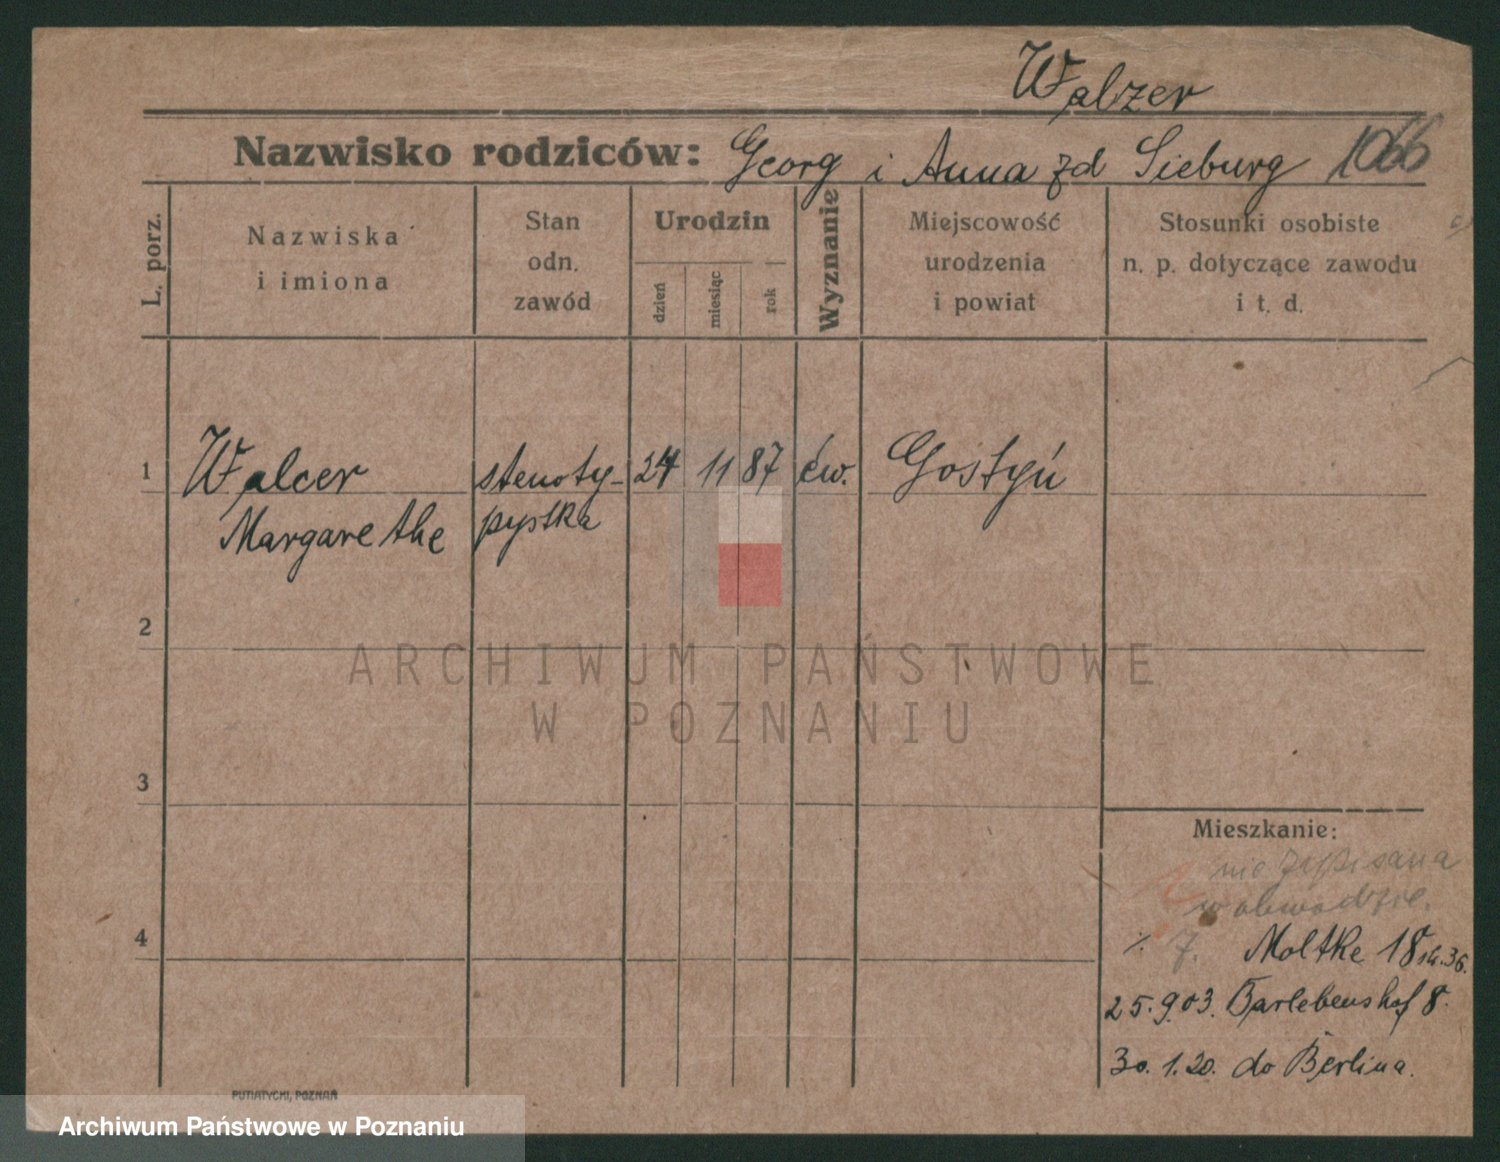 Walzer
Nazwisko rodziców: Georg i Anna zd Sieburg 1066
L. porz.
Nazwiska
i imiona
Stan
odn.
zawód
Urodzin
dzień
miesiąc
rok
Wyznanie
Miejscowość
urodzenia
i powiat
Stosunki osobiste
n. p. dotyczące zawodu
i t. d.
1 Walcer stenoty- 24 11 87 ew. Gostyń
Margarethe pystka
2
ARCHIWUM PAŃSTWOWE
W POZNANIU
3
Mieszkanie:
nie zapisana
w obwodzie.
4 7. Moltke 18
25.9.03. Barlebenshof 8.
30.1.20. do Berlina.
PUTIATYCKI, POZNAŃ
Archiwum Państwowe w Poznaniu